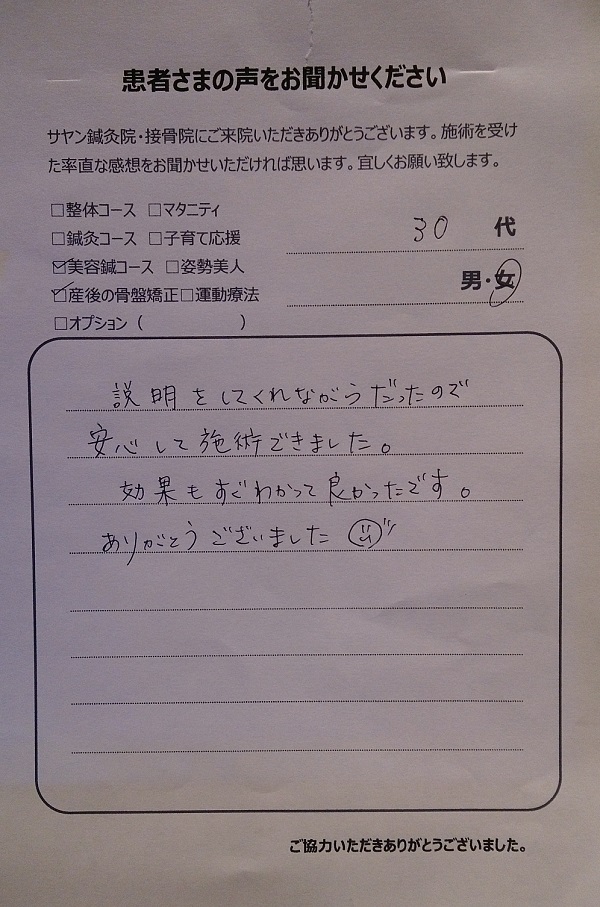 患者さまの声をお聞かせください
サヤン鍼灸院・接骨院にご来院いただきありがとうございます。施術を受け
た率直な感想をお聞かせいただければ思います。宜しくお願い致します。
□整体コース □マタニティ
30 代
□鍼灸コース □子育て応援
☑美容鍼コース □姿勢美人
男・女
☑産後の骨盤矯正□運動療法
□オプション（ ）
説明をしてくれながらだったので
安心して施術できました。
効果もすぐわかって良かったです。
ありがとうございました
ご協力いただきありがとうございました。